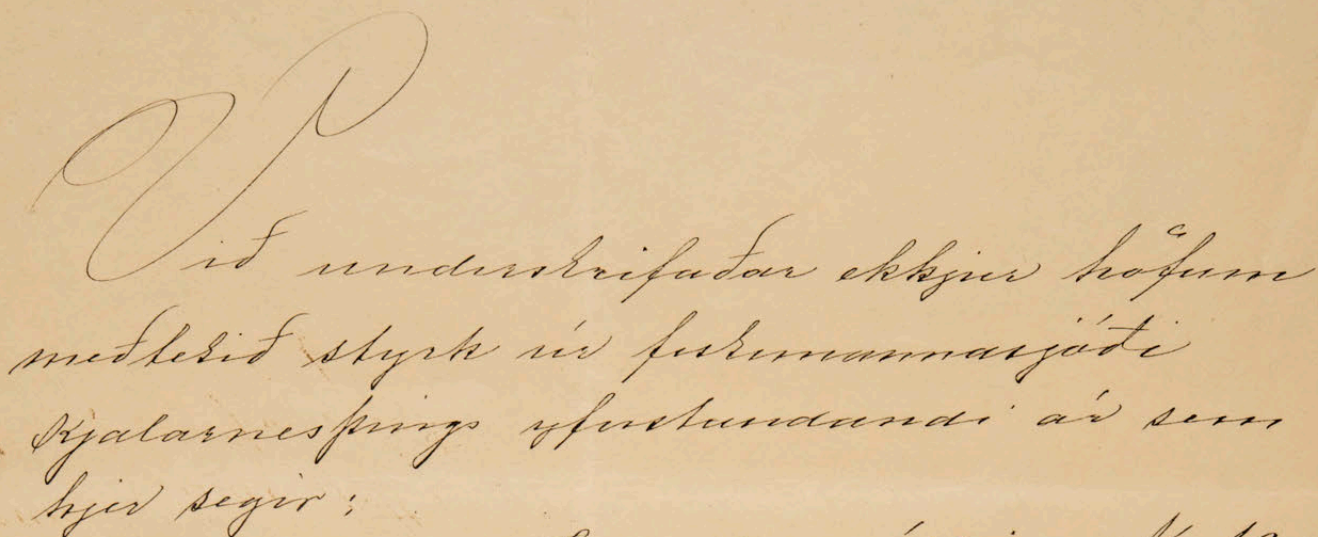 Við undirskrifaðar ekkjur höfum
meðtekið styrk úr fiskimannasjóði
Kjalarnesþings yfirstandandi ár sem
hjer segir: